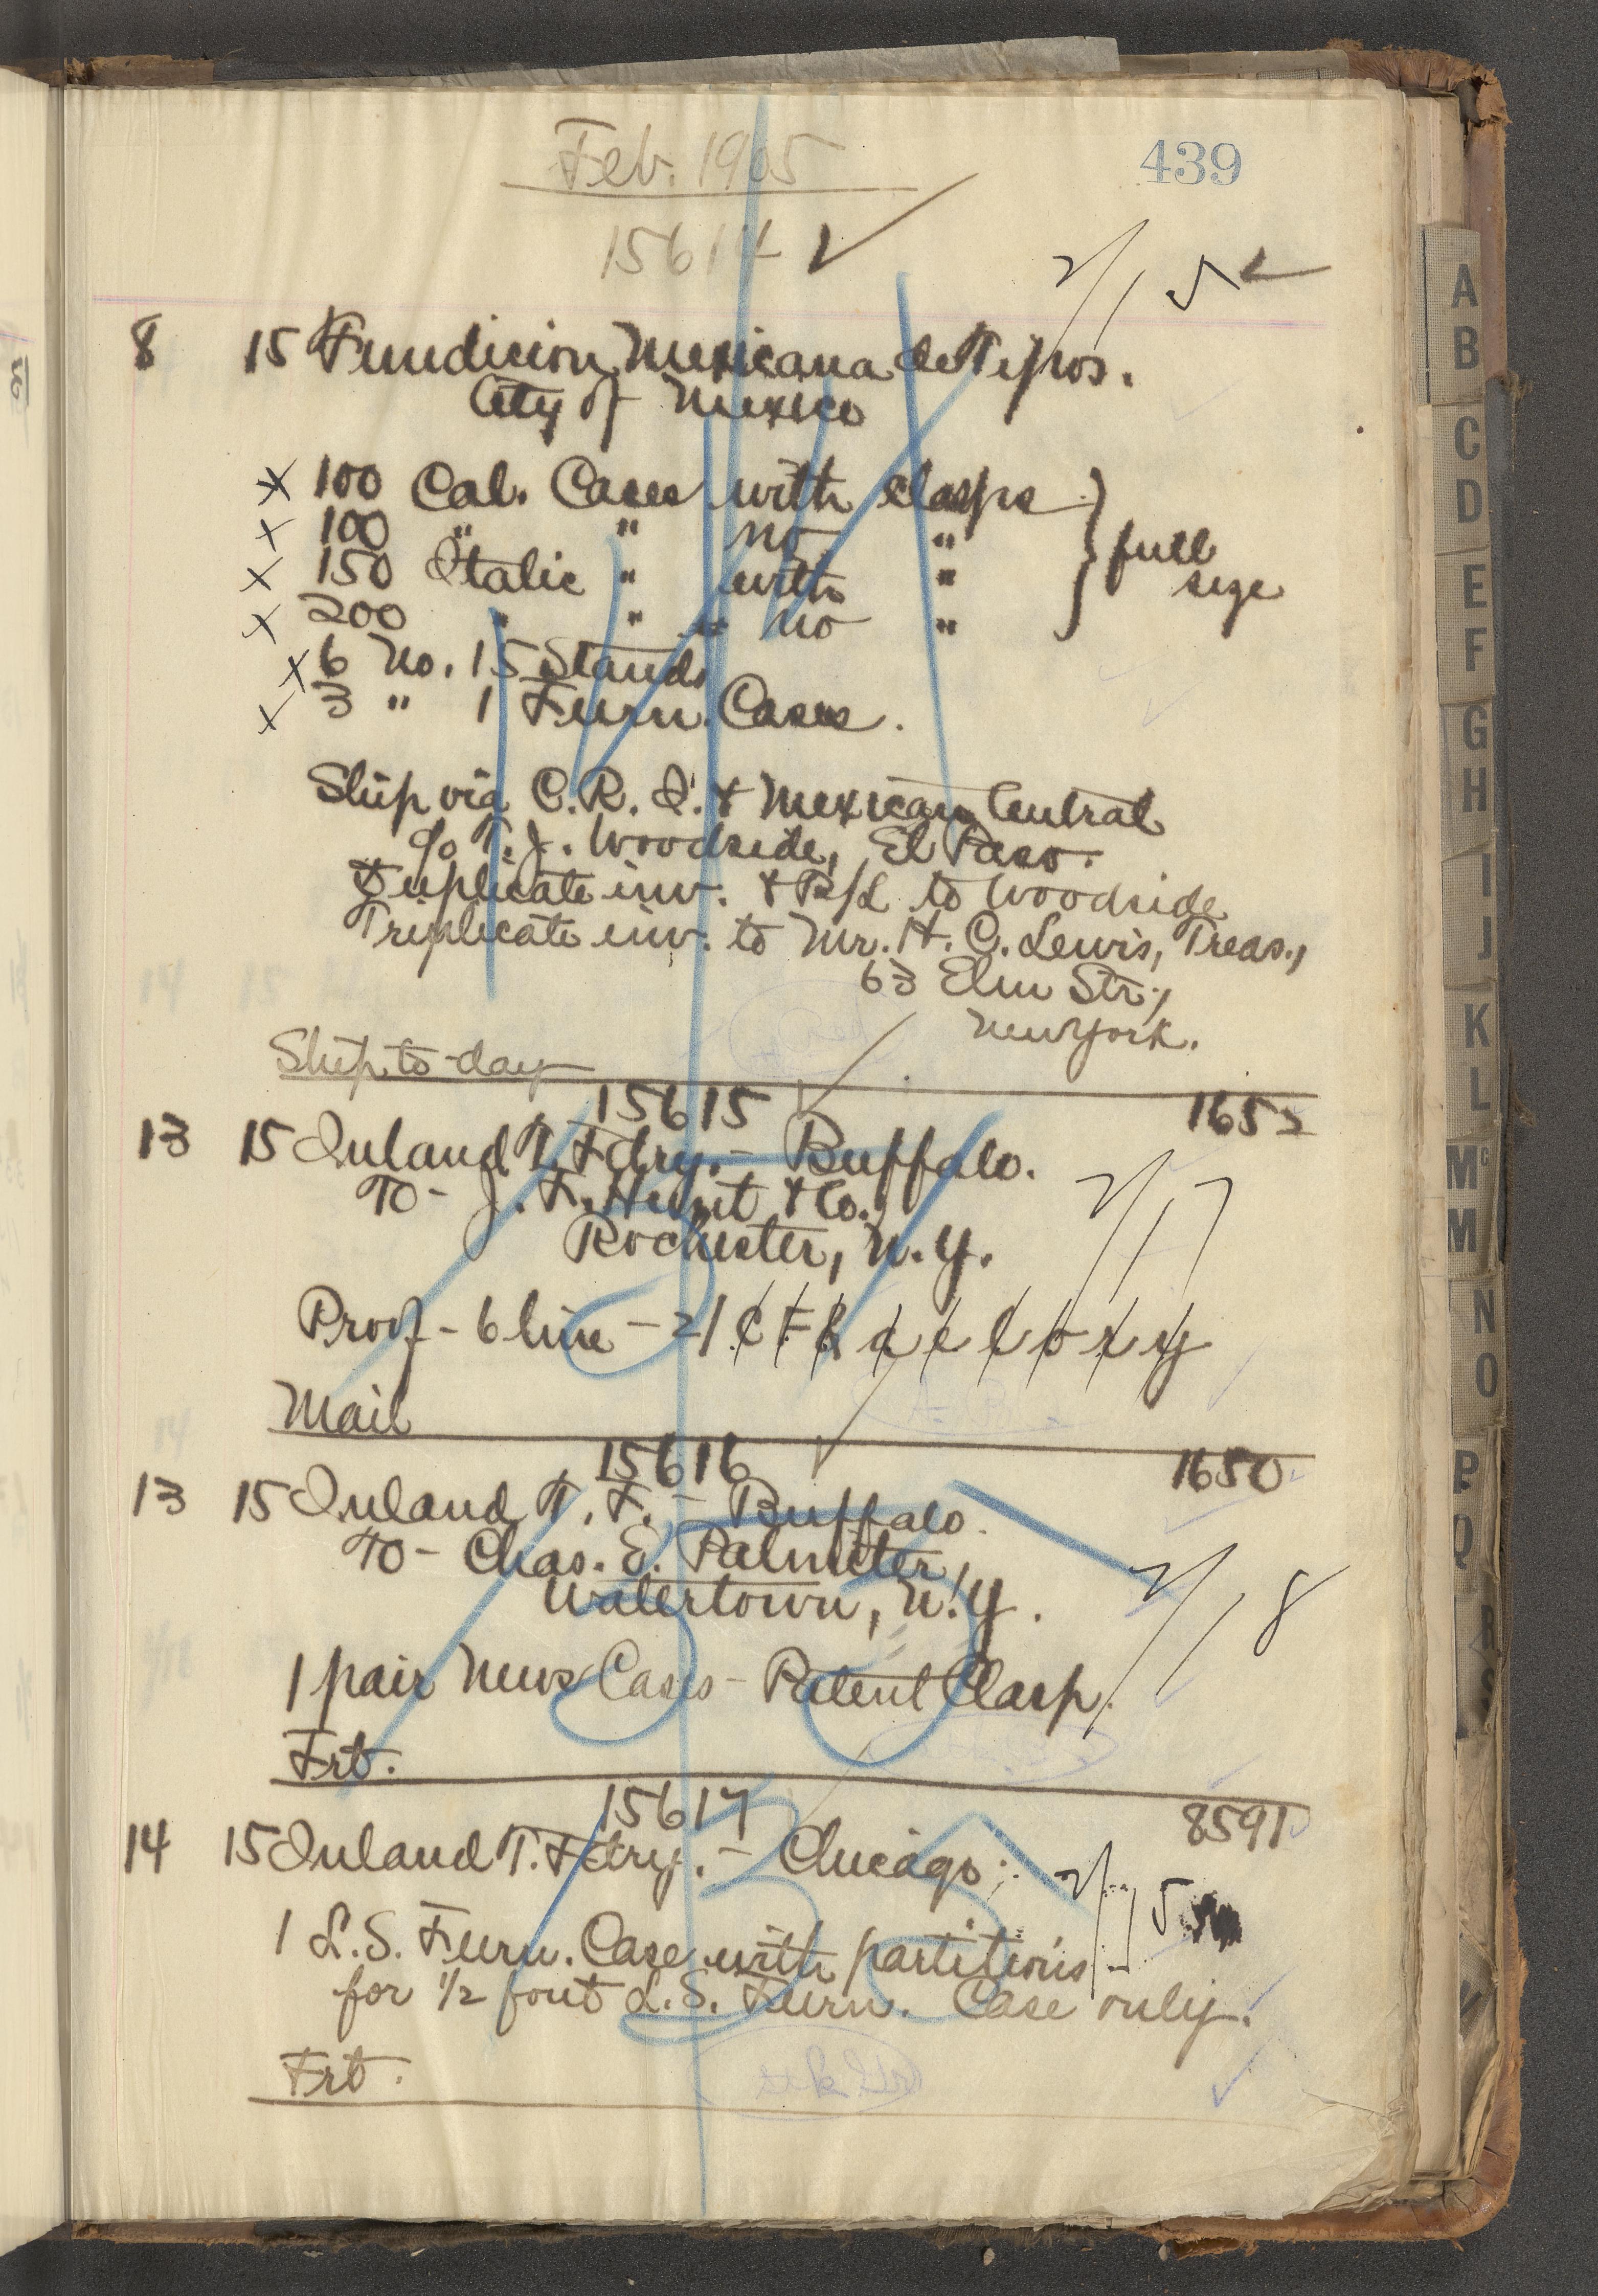 439
Feb. 1905
15614 ✓
2/15
8 15 Fundicion Mexicana de Tipos.
City of Mexico
x 100 Cal. Cases with clasps
x 100 " " no " } full
x 150 Italic " with " size
x 200 " " no "
x 6 No. 15 Stands
x 3 " 1 Furn. Cases.
Ship via C. R. I. & Mexican Central
c/o T. J. Woodside, El Paso.
Duplicate inv. & B/L to Woodside
Triplicate inv. to Mr. H. C. Lewis, Treas.,
63 Elm Str.,
New York.
Ship to-day
15615 ✓ 1652
13 15 Inland T. Fdry. - Buffalo.
To - J. F. & Co.,
Rochester, N.Y.
2/17
Proof - 6 line - 21 C F R a e l o r y
Mail
15616 ✓ 1650
13 15 Inland T. F. - Buffalo.
To - Chas. E. Palmiter,
Watertown, N.Y.
2/18
1 pair News Cases - Patent Clasp.
Frt.
15617 8591
14 15 Inland T. Fdry. - Chicago.
2/15
1 L.S. Furn. Case with partitions
for 1/2 font L.S. Furn. Case only.
Frt.
A
B
C
D
E
F
G
H
I
J
K
L
Mc
M
N
O
P
Q
R
S